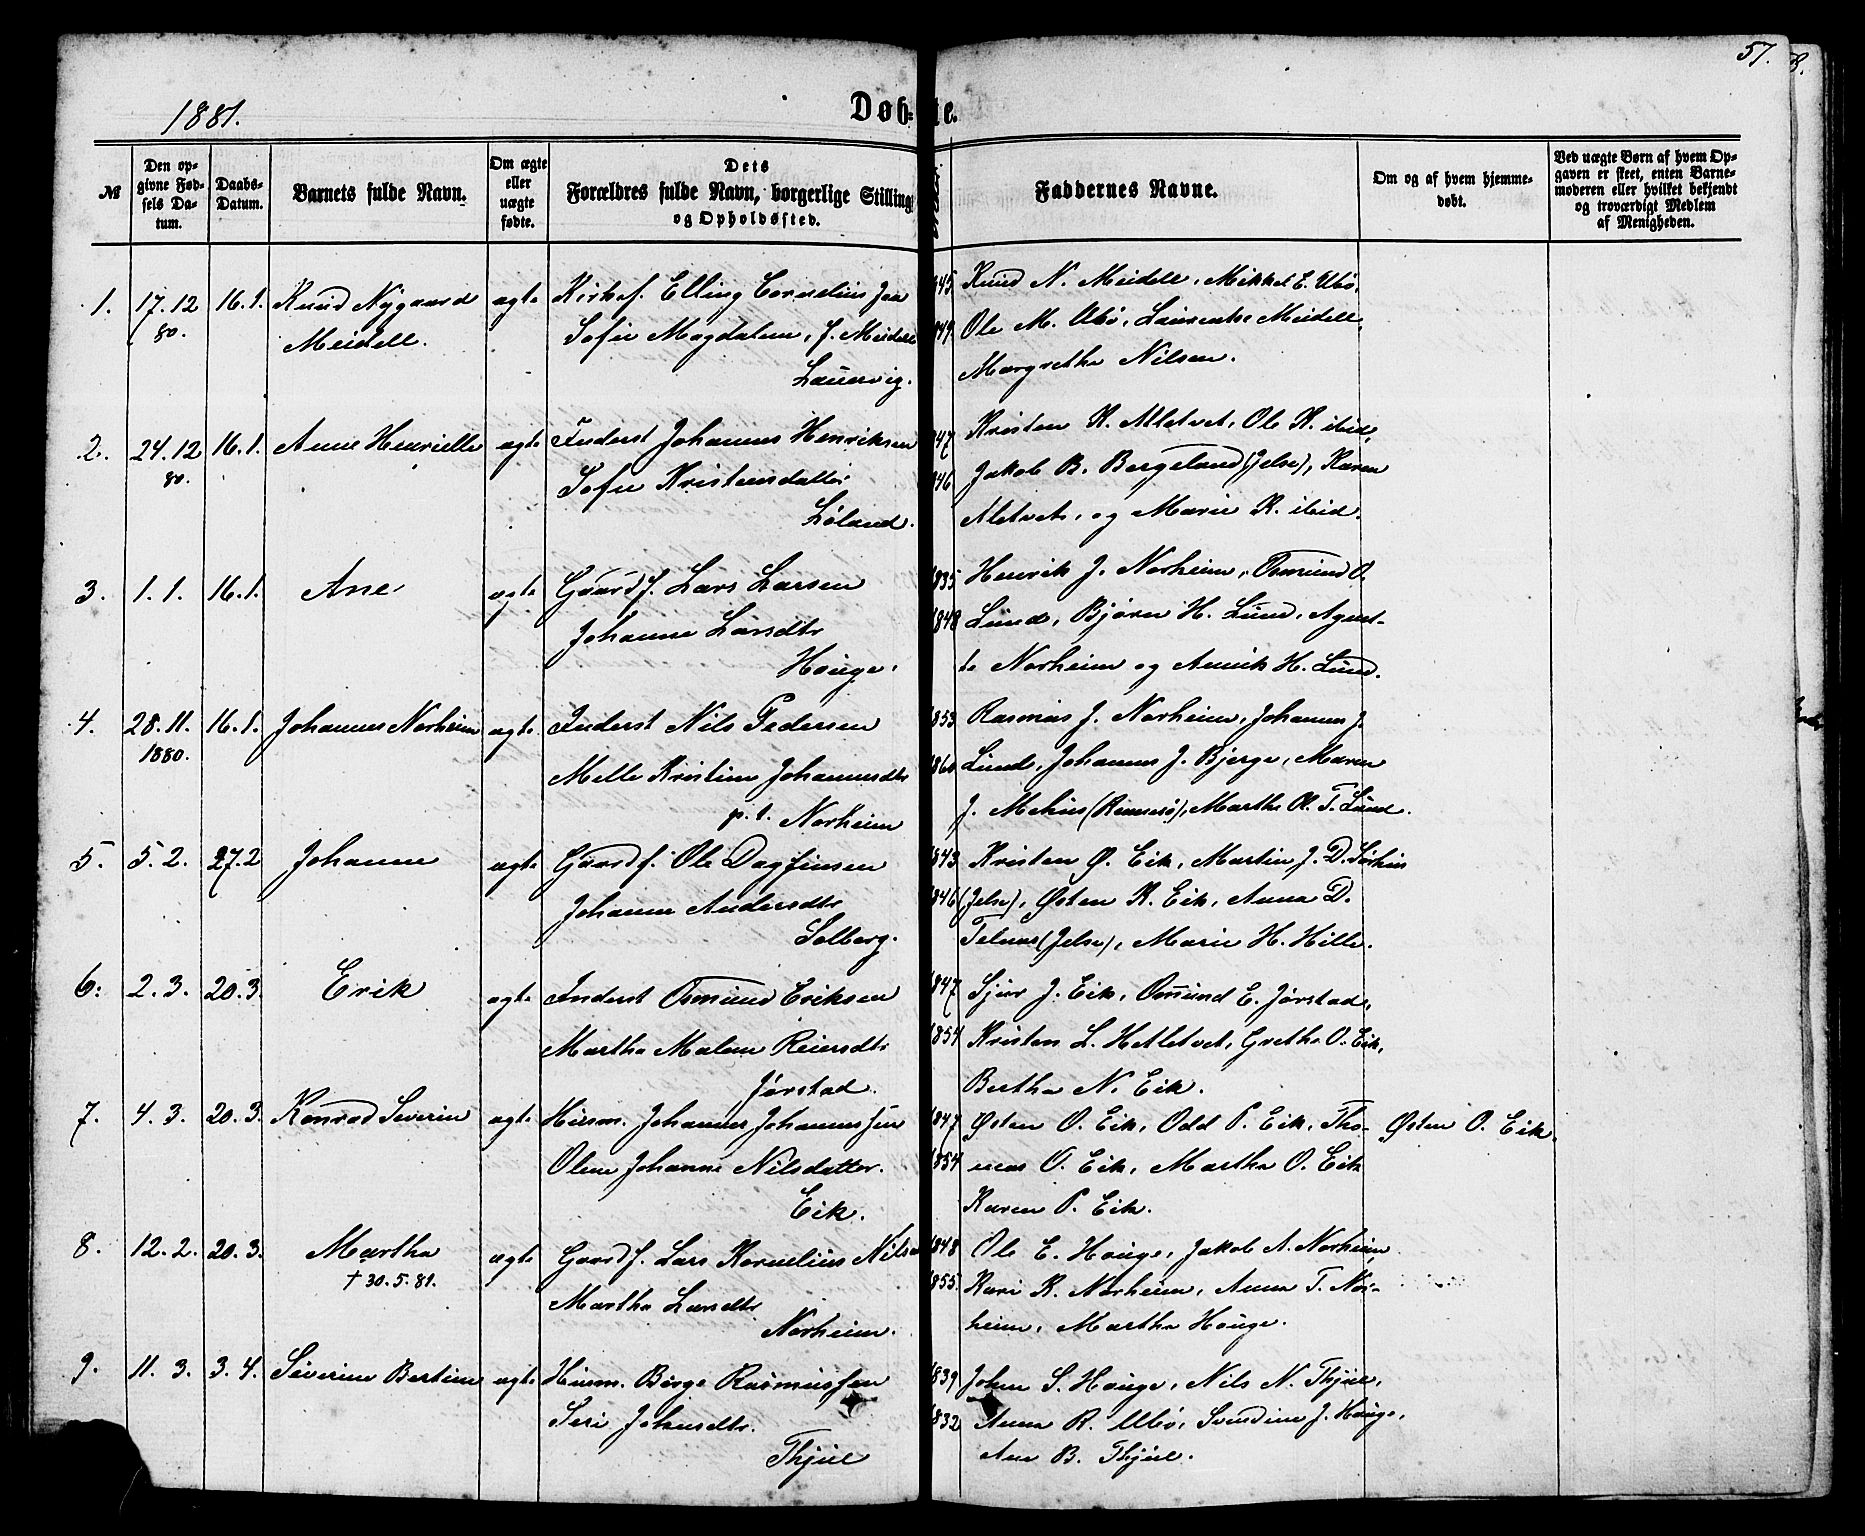 57.
1881.
Døb- te.
№
Den opgivne Fødsels Datum.
Daabs-Datum.
Barnets fulde Navn.
Om ægte eller uægte fødte.
Dets Forældres fulde Navn, borgerlige Stilling og Opholdssted.
Faddernes Navne.
Om og af hvem hjemmedøbt.
Ved uægte Børn af hvem Opgaven er skeet, enten Barnemoderen eller hvilket bekjendt og troværdigt Medlem af Menigheden.
1. 17.12 80. 16.1. Knud Nygaard Meidell. ægte
Elling Cornelius
Sofie Magdalene, f. Meidell
Lauervig.
845
849
Knud N. Meidell, Mikkel E. Ubø,
Ole M. Ubø, Laurentse Meidell
Margrethe Nilsen.
2. 24.12 80. 16.1. Anne Henrielle ægte
Inderst Johannes Henriksen
Sofie Kristensdatter
Løland.
847
846
Kristen K. Atletvet, Ole K. ibid,
Jakob B. Bergeland (Jelse), Karen
Atletvet, og Marie K. ibid.
3. 1.1. 16.1. Ane ægte
Gaardf. Lars Larsen
Johanne Larsdtr
Houge.
835
848
Henrik J. Norheim, Osmund O.
Lund, Bjørn H. Lund, Agent-
te Norheim og Annik H. Lund.
4. 28.11. 1880. 16.1. Johannes Norheim ægte
Inderst Nils Pedersen
Melle Kristine Johannesdtr
p.t. Norheim
853
860
Rasmus J. Norheim, Johannes J.
Lund, Johannes J. Bjerge, Maren
J. Mehus (Rennesø), Marthe O. T. Lund.
5. 5.2. 27.2 Johanne ægte
Gaardf. Ole Dagfinsen
Johanne Andersdtr
Solberg.
843
846
Kristen Ø. Eik, Martin J. D.
(Jelse), Østen K. Eik, Anna D.
Telnes (Jelse), Marie H. Hille.
6. 2.3. 20.3. Erik ægte
Inderst Osmund Eriksen
Martha Malene Reiersdtr
Jørstad.
1847
1854
Sjur J. Eik, Osmund E. Jørstad,
Kristen L. Hetletvet, Grethe O. Eik,
Bertha N. Eik.
7. 4.3. 20.3. Konrad Severin ægte
Husm. Johannes Johannessen
Oline Johanne Nilsdatter.
Eik.
1847
1854
Østen O. Eik, Odd P. Eik, Tho-
mas O. Eik, Martha O. Eik
Karen P. Eik.
Østen O. Eik.
8. 12.2. 20.3. Martha ægte
† 30.5.81.
Gaardf. Lars Kornelius Nilsen
Martha Larsdtr
Norheim.
1848
1855.
Ole E. Houge, Jakob A. Norheim,
Kari K. Norheim, Anna T. Nor-
heim, Martha Houge.
9. 11.3. 3.4. Severine Bertine ægte
Husm. Børge Rasmussen
Siri Johnsdtr.
Thjul
1839
1832
John S. Houge, Nils N. Thjul,
Anna R. Ubø, Svendine J. Houge,
Ane B. Thjul.